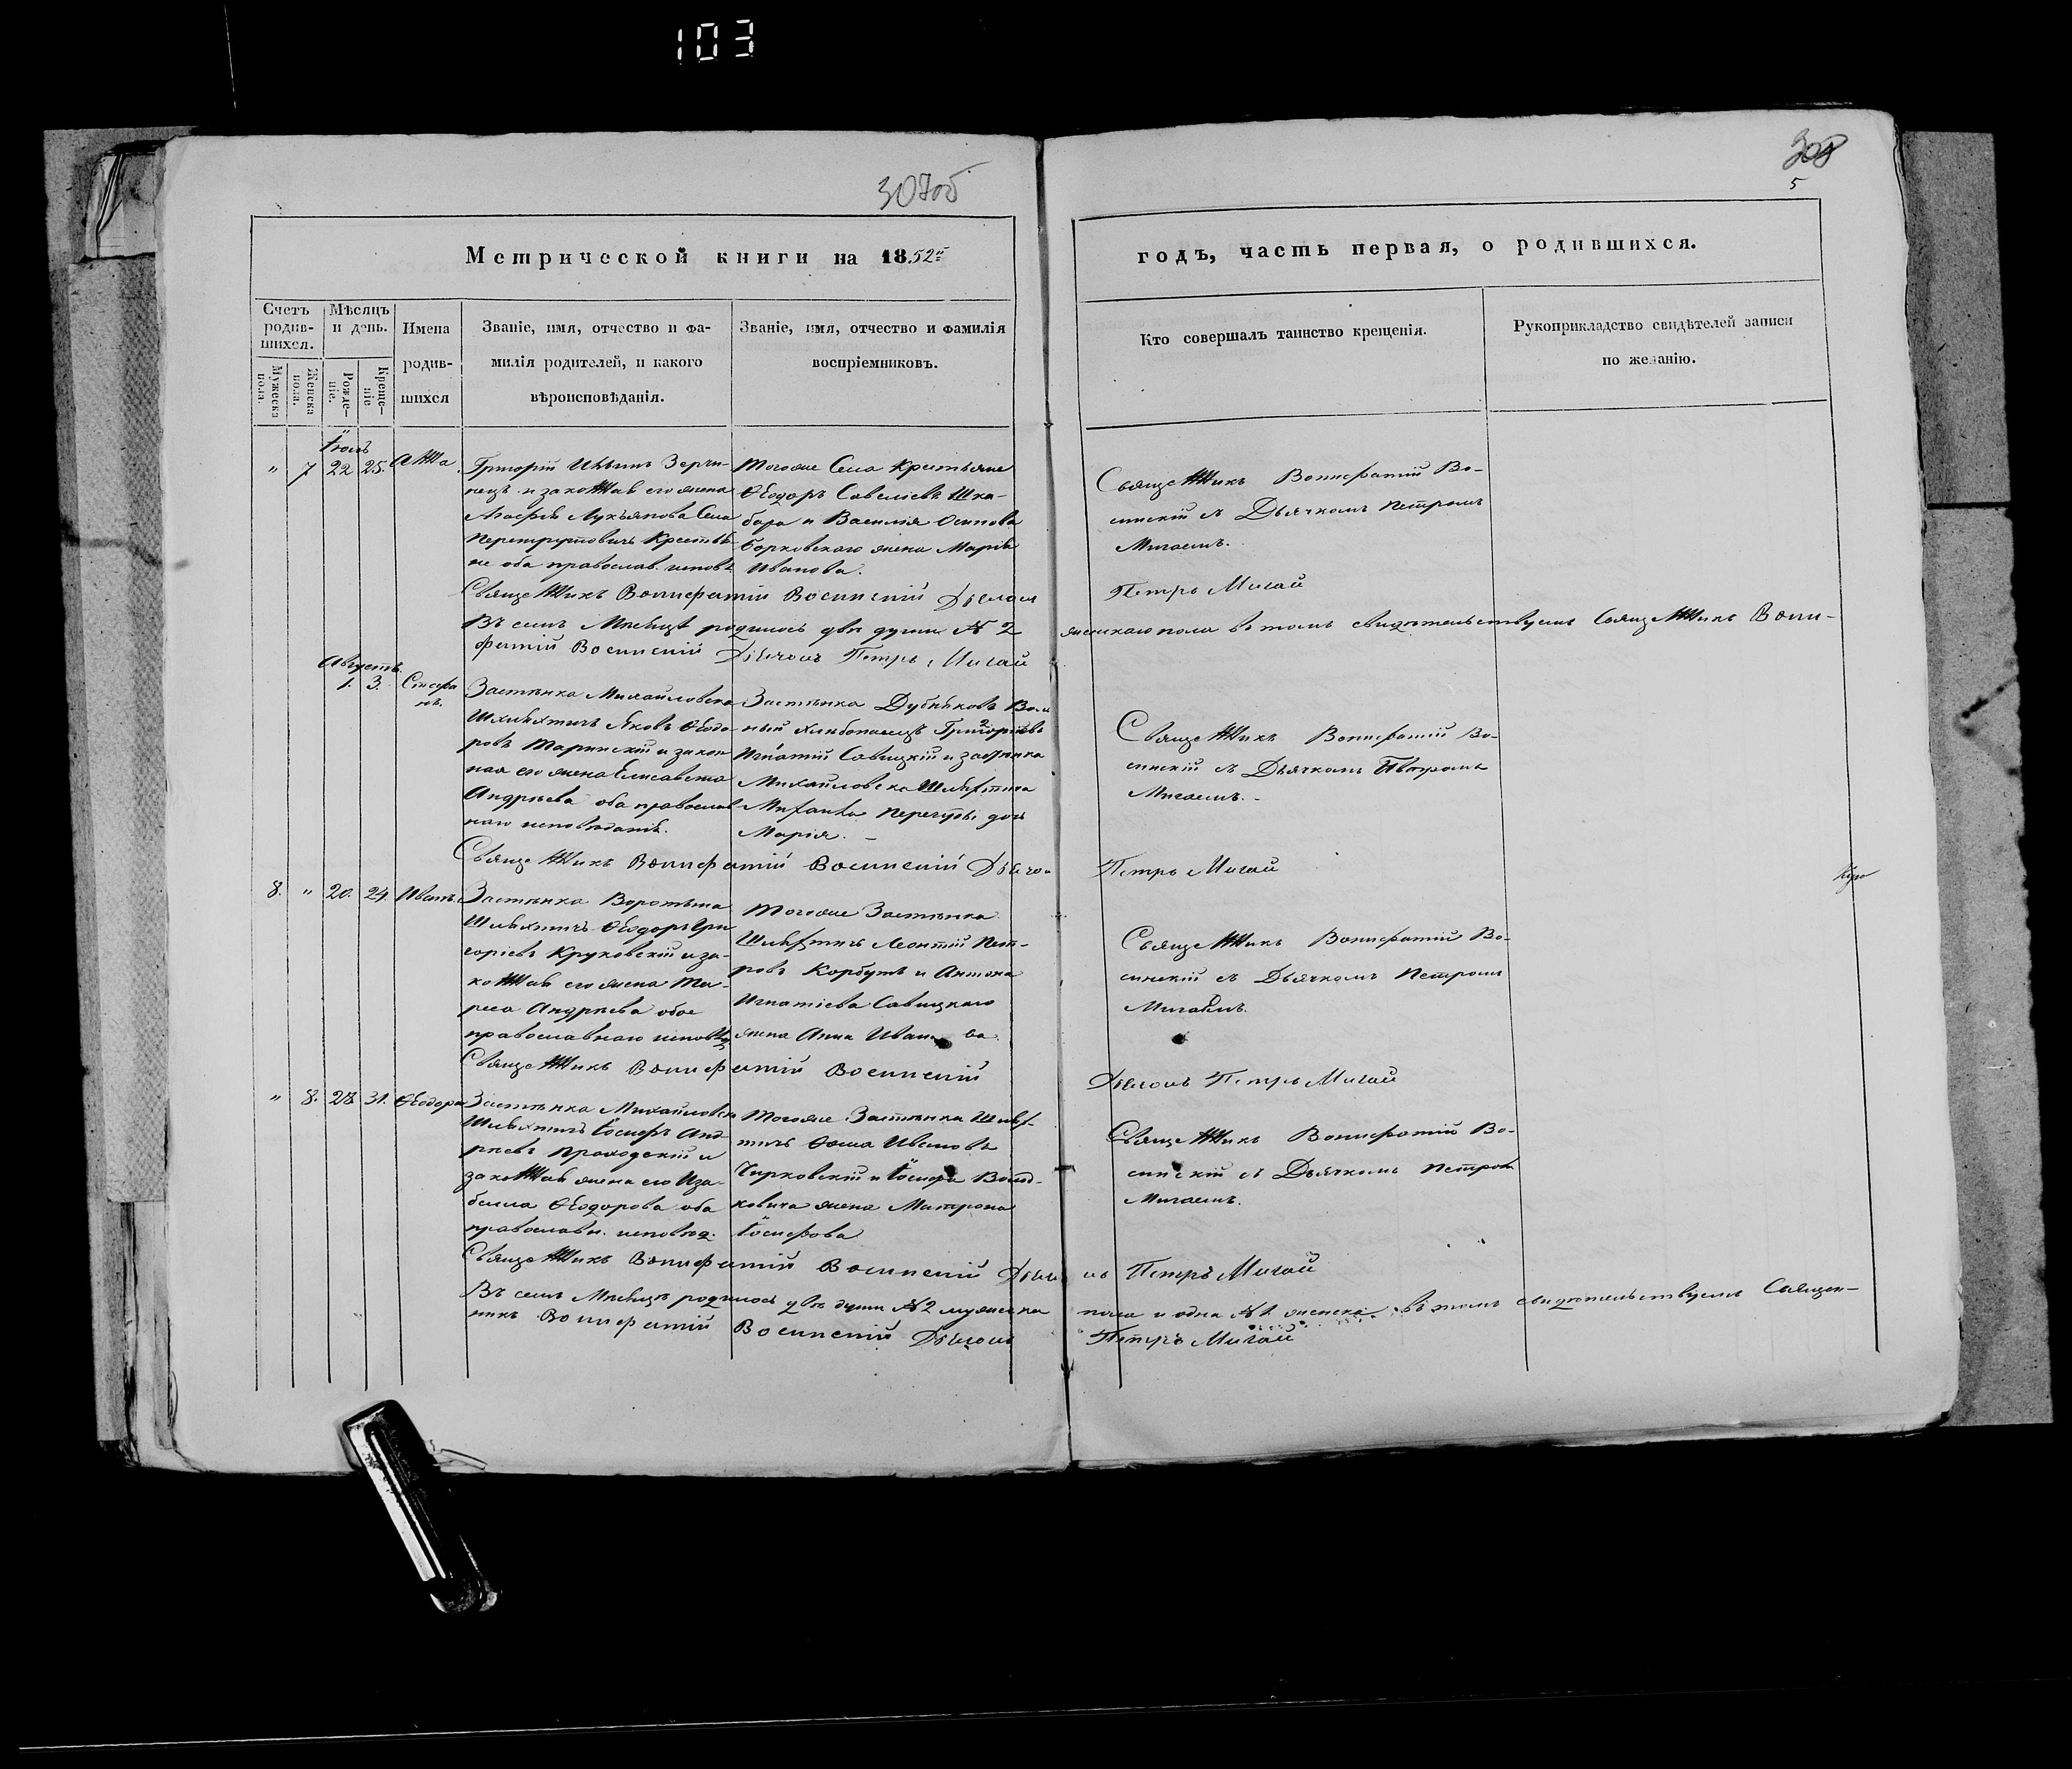 103
307об
308
5
Метрической книги на 1852й
годъ, часть первая, о родившихся.
Счетъ родив-шихся.
Мѣсяцъ и день.
Мужеска пола.
Женска пола.
Рожде-ніе.
Креще-ніе
Имена
родив-
шихся
Званіе, имя, отчество и фа-
милія родителей, и какого
вѣроисповѣданія.
Званіе, имя, отчество и фамилія
воспріемниковъ.
Кто совершалъ таинство крещенія.
Рукоприкладство свидѣтелей записи
по желанію.
Іюль
" 7 22 25. Анна
Григорій
и законная его жена
Лукьянова Села
Крестья-
не оба православ. исповѣ.
Тогоже Села Крестьяне
Ѳеодоръ Савеліевъ Шка-
бара и Василія Осипова
Борковскаго жена Марія
Иванова.
Священникъ Вонифатій Во-
синскій съ Дьячкомъ Петромъ
Мигаемъ.
Священникъ Вонифатій Восинскій Дьячокъ Петръ Мигай
Въ семъ Мѣсяцѣ родилось двѣ души № 2 женскаго пола въ томъ свидѣтельствуемъ Священникъ Вони-
фатій Восинскій Дьячокъ Петръ Мигай
Августъ
1. 3. Стефа
нъ.
Застѣнка Михайловска
Шляхтичъ Яковъ Ѳеодо
ровъ Таринскій и закон
ная его жена Елисавета
Андреева оба православ
наго исповѣданія.
Застѣнка Дубниковъ Воль
ный хлѣбопашецъ Григоріевъ
Игнатій Савицкій и застѣнка
Михайловска Шляхтича
Михаила дочь
Марія. –
Священникъ Вонифатій Во-
синскій съ Дьячкомъ Петромъ
Мигаемъ. -
Священникъ Вонифатій Восинскій Дьячокъ Петръ Мигай
8. " 20. 24. Иванъ
Застѣнка
Шляхтичъ Ѳеодоръ Гри
горіевъ Круковскій и за-
конная его жена Те-
реса Андреева обое
православнаго исповѣд.
Тогоже Застѣнка
Шляхтичъ Леонтій Пет-
ровъ Корбутъ и Антона
Игнатіева Савицкаго
жена Анна Иванова.
Священникъ Вонифатій Во-
синскій съ Дьячкомъ Петромъ
Мигаемъ.
Священникъ Вонифатій Восинскій Дьячокъ Петръ Мигай
" 8. 28. 31. Ѳеодора
Застѣнка Михайловска
Шляхтичъ Іосифъ Анд-
реевъ и
законная жена его Иза-
белла Ѳеодорова оба
православн. исповѣд.
Тогоже Застѣнка Шлях-
тичъ Ѳома Ивановъ
Чирковскій и Іосифа Войд-
ковича жена Матрона
Іосифова
Священникъ Вонифатій Во-
синскій съ Дьячкомъ Петромъ
Мигаемъ.
Священникъ Вонифатій Восинскій Дьячокъ Петръ Мигай
Въ семъ Мѣсяцѣ родилось двѣ души № 2 мужеска пола и одна № 1 женска въ томъ свидѣтельствуемъ Священ-
никъ Вонифатій Восинскій Дьячокъ Петръ Мигай